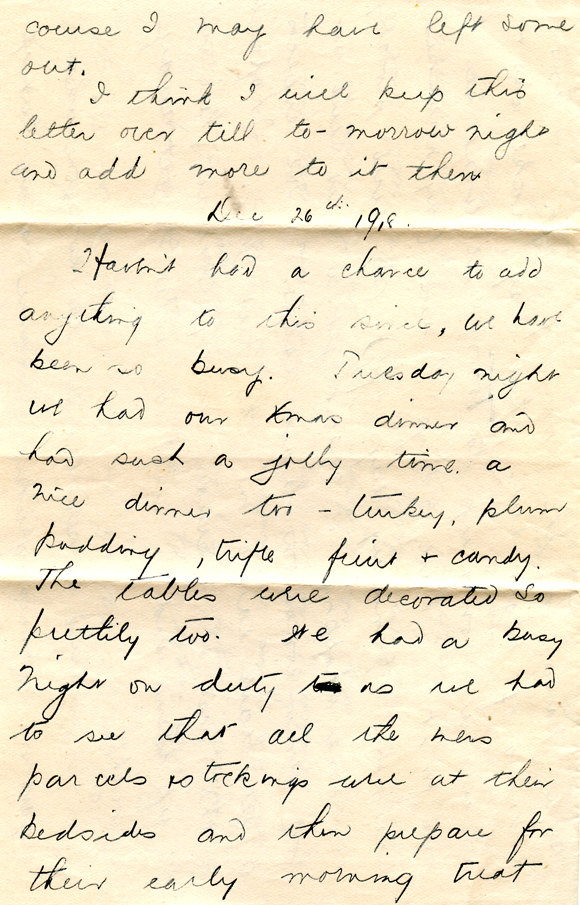 couse I may have left some
out.
I think I will keep this
letter over till to-morrow night
and add more to it then
Dec 26th 1918.
Havn't had a chance to add
anything to this since, we have
been so busy. Tuesday night
we had our Xmas dinner and
had such a jolly time. a
nice dinner too - turkey, plum
pudding, trifle fruit + candy.
The tables were decorated so
prettily too. We had a busy
night on duty as we had
to see that all the mens
parcels + stockings were at their
bedsides and then prepare for
their early morning treat